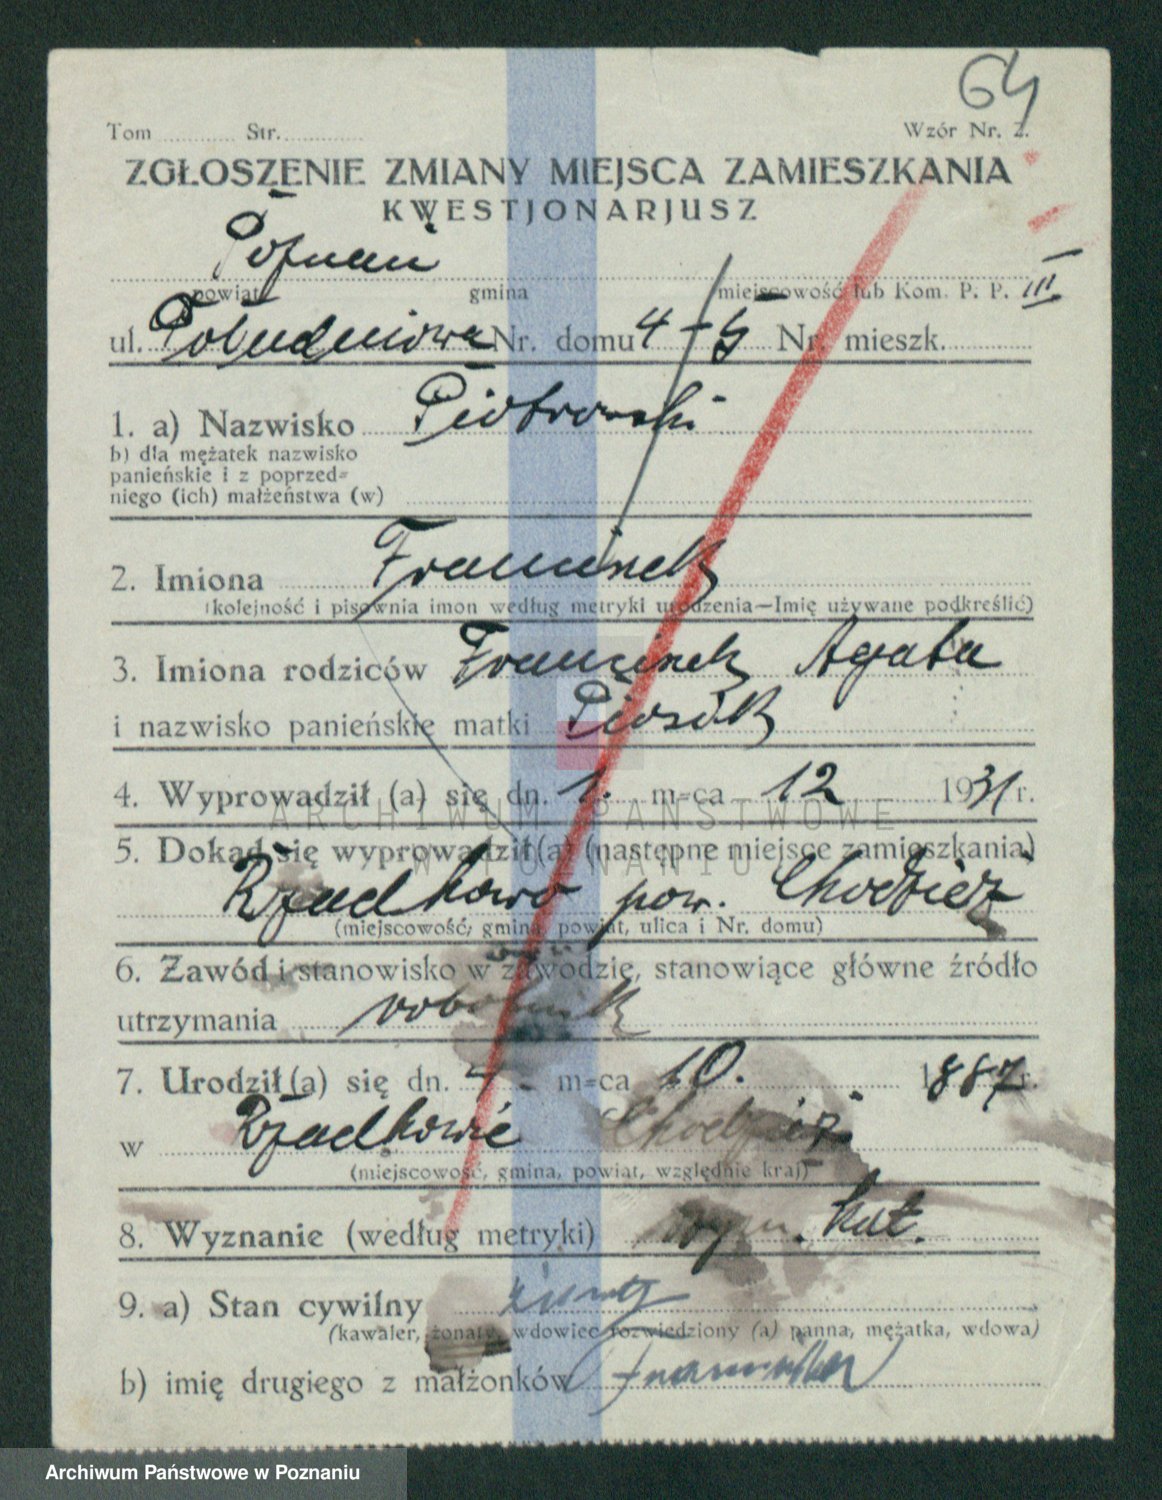 64
Tom ........... Str. ............
Wzór Nr. 2.
ZGŁOSZENIE ZMIANY MIEJSCA ZAMIESZKANIA
KWESTJONARJUSZ
Poznań
powiat gmina miejscowość lub Kom. P. P. III
ul. Południowa Nr. domu 4-5 Nr. mieszk.
1. a) Nazwisko Piotrowski
b) dla mężatek nazwisko
panieńskie i z poprzed=
niego (ich) małżeństwa (w)
2. Imiona Franciszek
(kolejność i pisownia imon według metryki urodzenia—Imię używane podkreślić)
3. Imiona rodziców Franciszek Agata
i nazwisko panieńskie matki
4. Wyprowadził (a) się dn. 1. m=ca 12 1931 r.
ARCHIWUM PAŃSTWOWE
W POZNANIU
5. Dokąd się wyprowadził (a) (następne miejsce zamieszkania)
Rzadkowo pow. Chodzież
(miejscowość, gmina, powiat, ulica i Nr. domu)
6. Zawód i stanowisko w zawodzie, stanowiące główne źródło
utrzymania robotnik
7. Urodził (a) się dn. 4. m=ca 10. 1887 r.
w Rzadkowie Chodzież
(miejscowość, gmina, powiat, względnie kraj)
8. Wyznanie (według metryki) rzym. kat.
9. a) Stan cywilny żonaty
(kawaler, żonaty, wdowiec rozwiedziony (a) panna, mężatka, wdowa)
b) imię drugiego z małżonków Franciszka
Archiwum Państwowe w Poznaniu